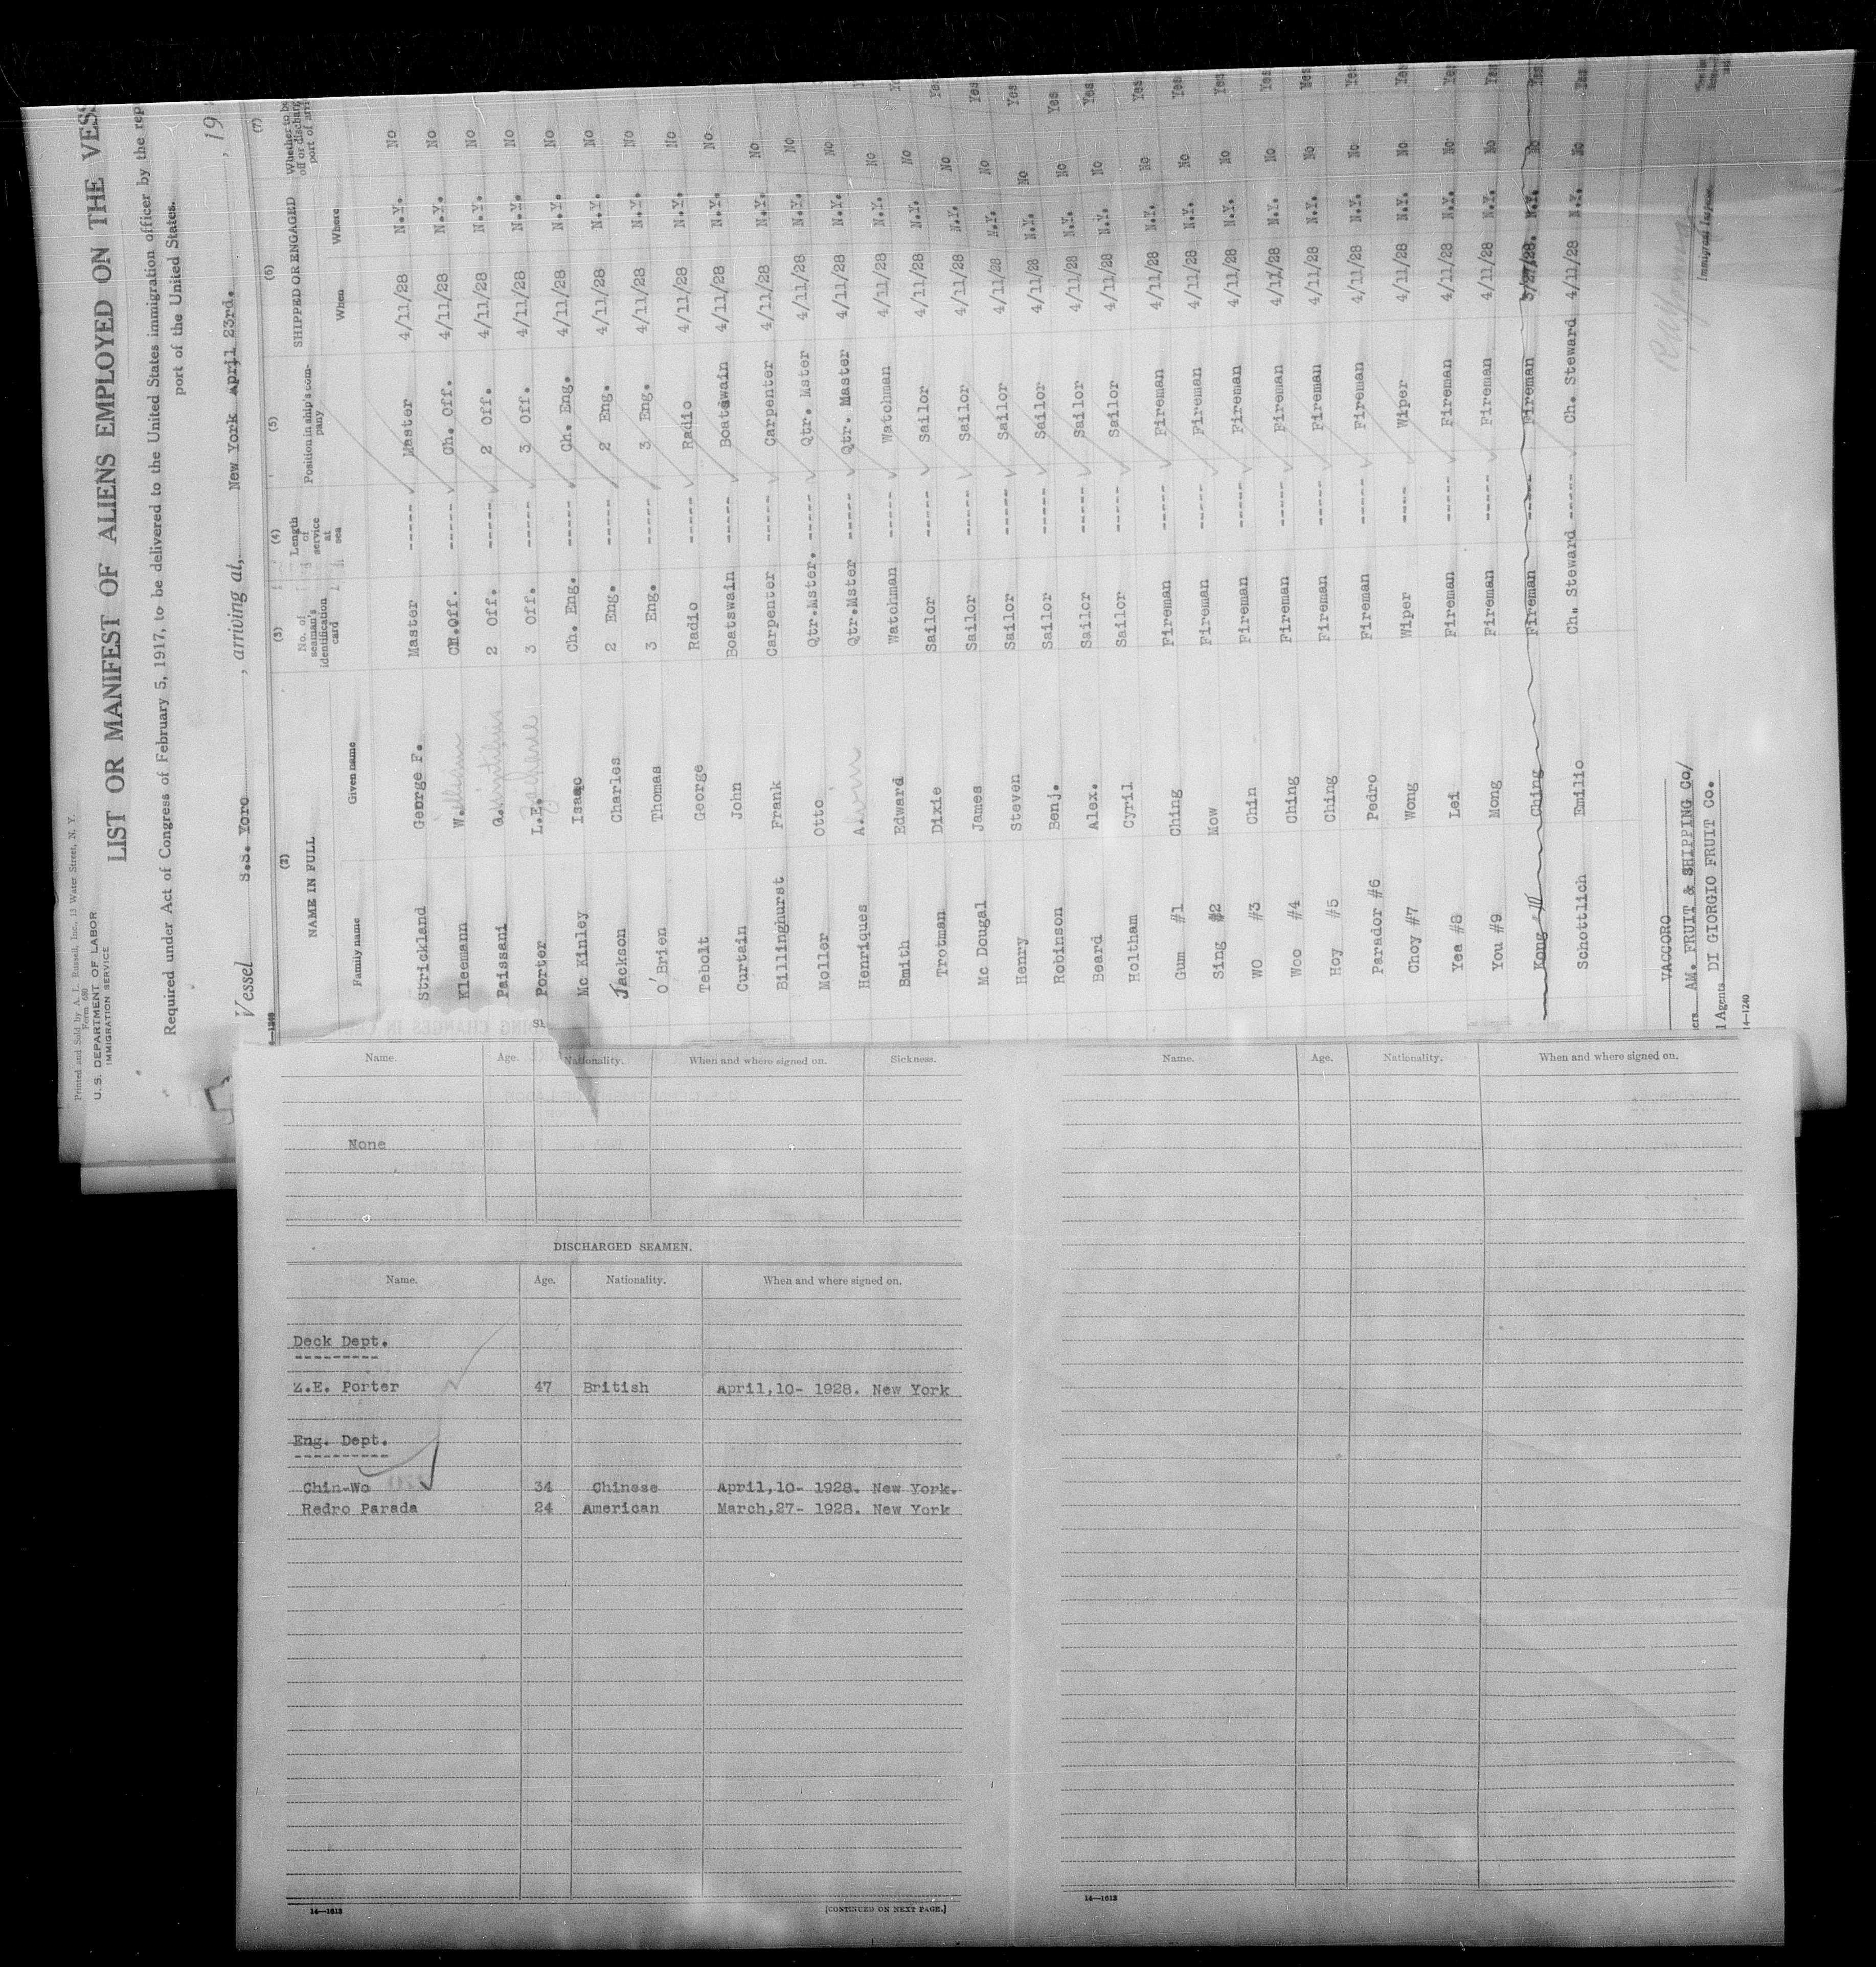 Printed and Sold by A. L. Russell, Inc., 13 Water Street, N. Y.
Form 680
U. S. DEPARTMENT OF LABOR
IMMIGRATION SERVICE
LIST OR MANIFEST OF ALIENS EMPLOYED ON THE VESS
Required under Act of Congress of February 5, 1917, to be delivered to the United States immigration officer by the rep
port of the United States.
Vessel S.S. Yoro , arriving at, New York April 23rd. , 19
(2) (3) (4) (5) (6) (7)
NAME IN FULL No. of seaman's identification card Length of service at sea Position in ship's company SHIPPED OR ENGAGED Whether to be
off or discharg
port of arri
Family name Given name When Where
Strickland George F. Master ----- Master 4/11/28 N.Y. No
Kleemann William Ch.Off. ----- Ch. Off. 4/11/28 N.Y. No
Paissani G. 2 Off. ----- 2 Off. 4/11/28 N.Y. No
Porter L.E. 3 Off. ----- 3 Off. 4/11/28 N.Y. No
Mc Kinley Isaac Ch. Eng. ----- Ch. Eng. 4/11/28 N.Y. No
Jackson Charles 2 Eng. ----- 2 Eng. 4/11/28 N.Y. No
O'Brien Thomas 3 Eng. ----- 3 Eng. 4/11/28 N.Y. No
Tebolt George Radio ----- Radio 4/11/28 N.Y. No
Curtain John Boatswain ----- Boatswain 4/11/28 N.Y. No
Billinghurst Frank Carpenter ----- Carpenter 4/11/28 N.Y. No
Moller Otto Qtr.Mster. ----- Qtr. Mster 4/11/28 N.Y. No
Henriques A. Qtr.Mster ----- Qtr. Master 4/11/28 N.Y. No
Smith Edward Watchman ----- Watchman 4/11/28 N.Y. No
Trotman Dixie Sailor ----- Sailor 4/11/28 N.Y. No Yes
Mc Dougal James Sailor ----- Sailor 4/11/28 N.Y. No Yes
Henry Steven Sailor ----- Sailor 4/11/28 N.Y. No Yes
Robinson Benj. Sailor ----- Sailor 4/11/28 N.Y. No Yes
Beard Alex. Sailor ----- Sailor 4/11/28 N.Y. No Yes
Holtham Cyril Sailor ----- Sailor 4/11/28 N.Y. No Yes
Gum #1 Ching Fireman ----- Fireman 4/11/28 N.Y. No Yes
Sing #2 Mow Fireman ----- Fireman 4/11/28 N.Y. No Yes
WO #3 Chin Fireman ----- Fireman 4/11/28 N.Y. No Yes
Woo #4 Ching Fireman ----- Fireman 4/11/28 N.Y. No Yes
Hoy #5 Ching Fireman ----- Fireman 4/11/28 N.Y. No Yes
Parador #6 Pedro Fireman ----- Fireman 4/11/28 N.Y. No Yes
Choy #7 Wong Wiper ---- Wiper 4/11/28 N.Y. No Yes
Yea #8 Lei Fireman ----- Fireman 4/11/28 N.Y. No Yes
You #9 Mong Fireman ----- Fireman 4/11/28 N.Y. No Yes
Kong Ching Fireman ----- Fireman 3/27/28. N.Y. No Yes
Schottlich Emilio Ch. Steward ----- Ch. Steward 4/11/28 N.Y. No Yes
VACCORO
AM. FRUIT & SHIPPING Co/
Agents DI GIORGIO FRUIT Co.
Immigrant Inspec
14—1240
Name. Age. Nationality. When and where signed on. Sickness.
None
DISCHARGED SEAMEN.
Name. Age. Nationality. When and where signed on.
Deck Dept.
Z.E. Porter 47 British April,10- 1928. New York
Eng. Dept.
Chin-Wo 34 Chinese April,10- 1928. New York.
Redro Parada 24 American March,27- 1928. New York
14—1613
[CONTINUED ON NEXT PAGE.]
Name. Age. Nationality. When and where signed on.
14—1613